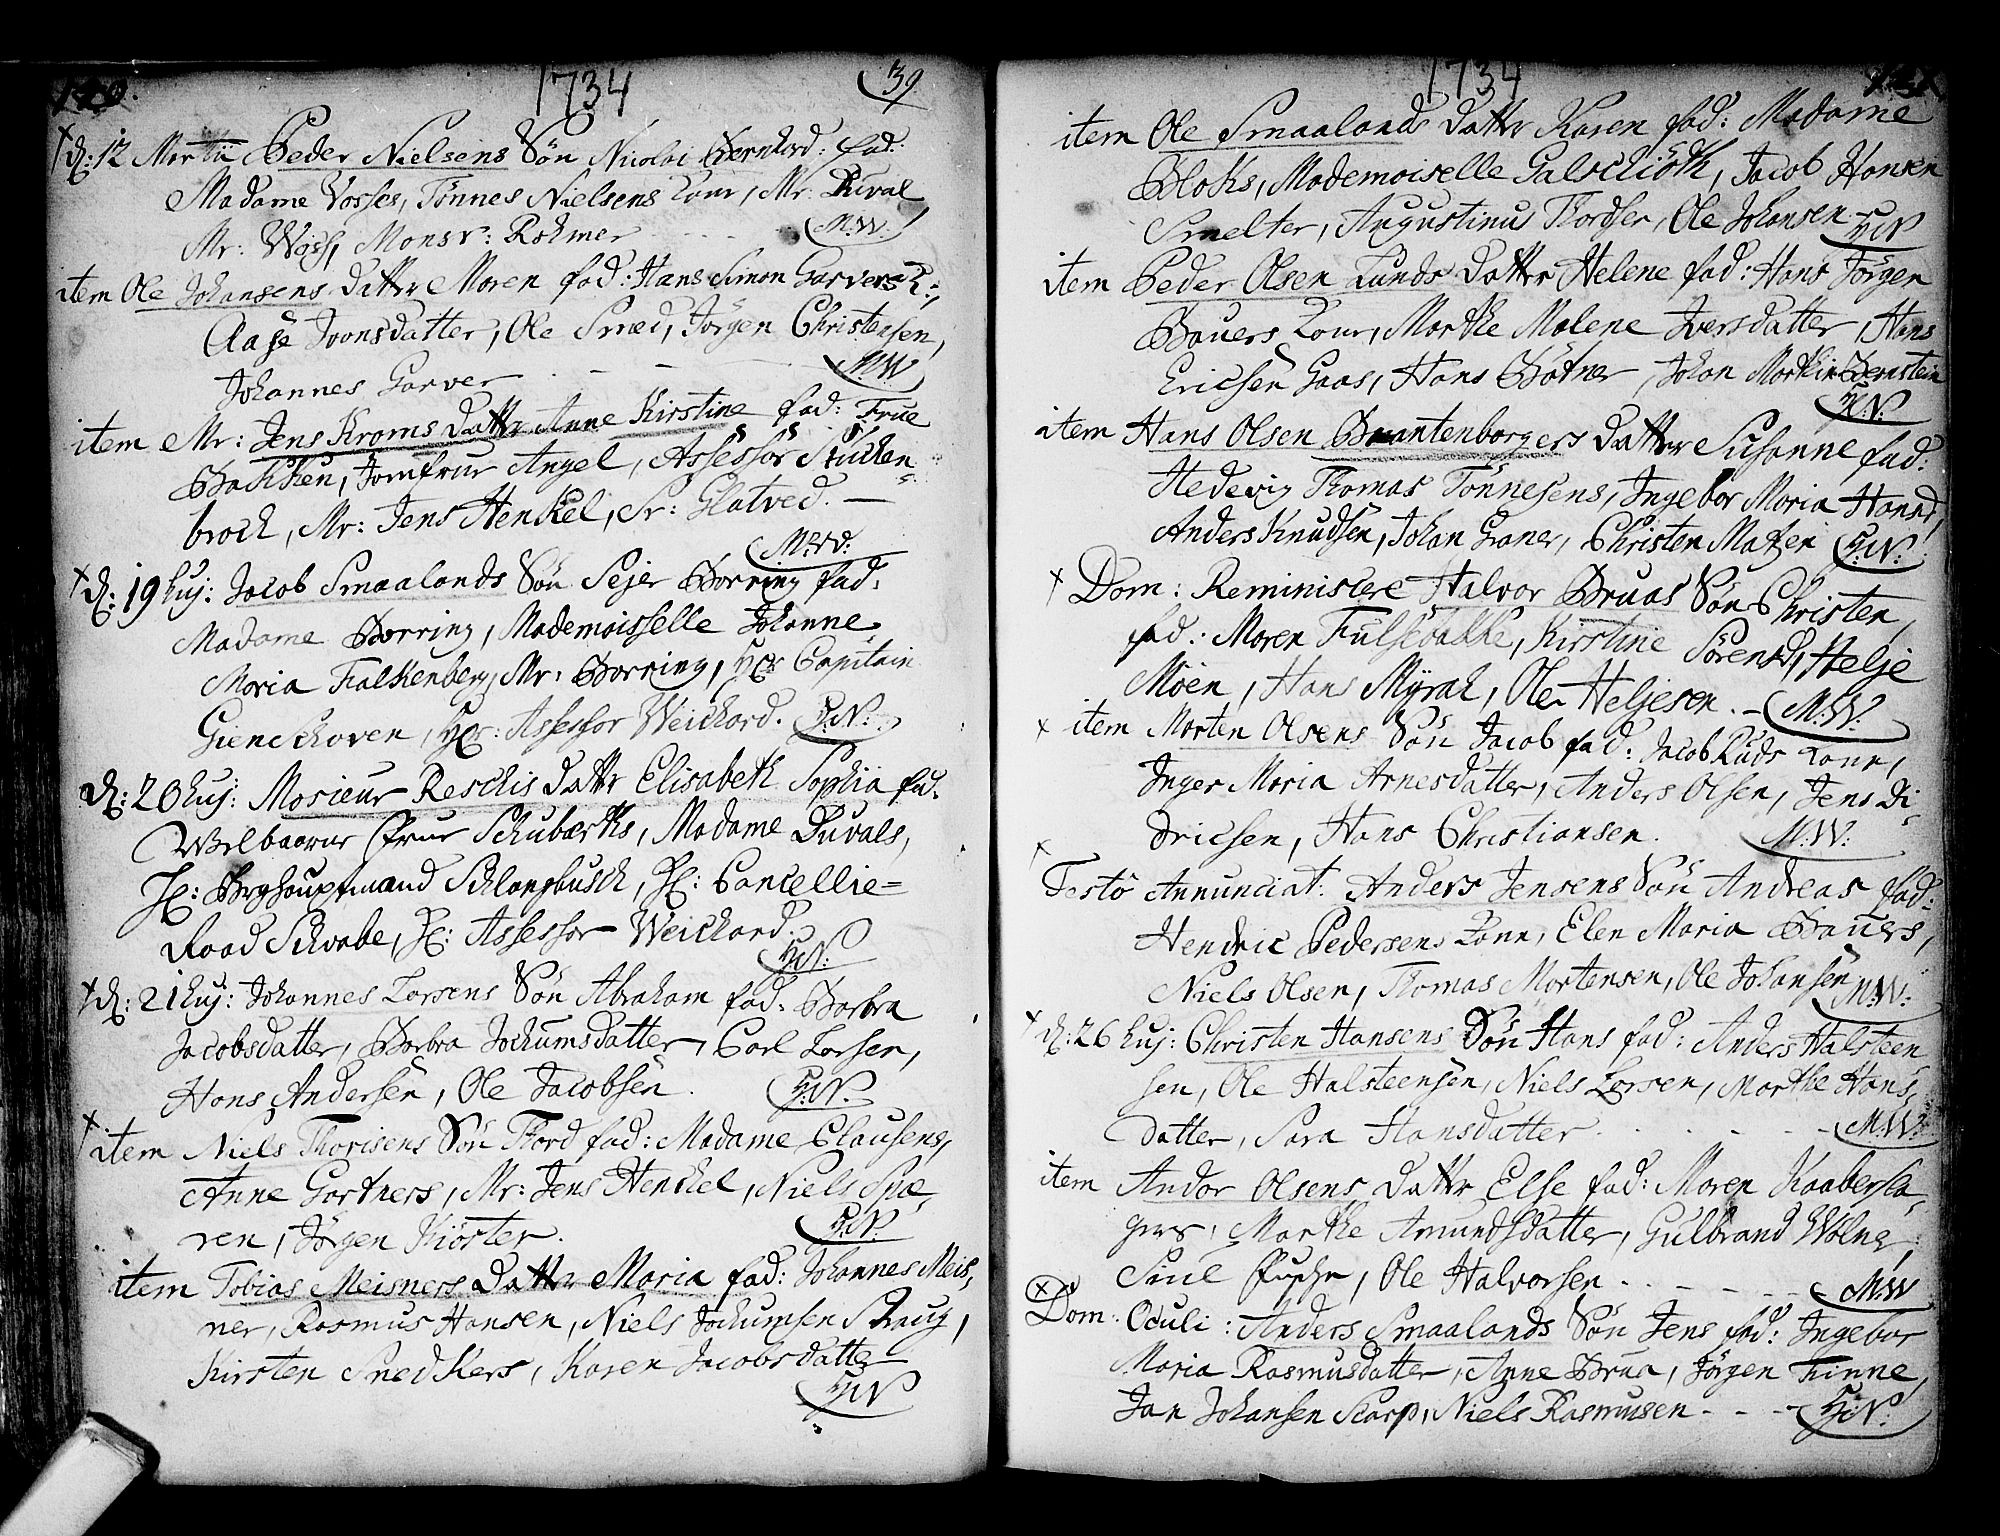 140. 1734 39
d: 12 Martii Peder Nielsens Søn Nicolai Bernhard: fad:
Madame Vosses, Tönnes Nielsens Konr, Mr. Duval
Mr: Wosh, Monsr: Rohmer M.W.
item Ole Johansens Datter Maren fad: Hans Simon Garvers K:,
Aase Joonsdatter, Ole Smed, Jörgen Christensen,
Johannes Garver M.W
item Mr: Jens Kroms Datter Anne Kirstine fad: Frue
Bakken, Jomfrur Angel, Assessor Stucken-
brock, Mr: Jens Henkel, Sr: Glatved.
M.W:
d: 19 huj: Jacob Smaalands Søn Sejer Borring fad.
Madame Borring, Mademoisselle Johanne
Maria Falkenberg, Mr. Borring, Hr: Capitain
Gienckhoven, Hr: Assessor Weichard. H.N.
d: 20 huj: Mosieur Reschis Datter Elisabeth Sophia fad.
Welbaarne frue Schubærths, Madame Duvals,
H: Berghauptmand Schlanbusch, H: Cancellie=
Raad Schvabe, H: Assessor Weichard.
H.N:
d: 21 huj: Johannes Larsens Søn Abraham fad. Barbra
Jacobsdatter, Barbra Jochumsdatter, Carl Larsen,
Hans Andersen, Ole Jacobsen. H.N.
item Niels Thorisens Søn Thord fad: Madame Clausens,
Anne Gartners, Mr: Jens Henckel, Niels Snæ
ren, Jörgen Kiörter. H.N.
item Tobias Meisners Datter Maria fad: Johannes Meis,
ner, Rasmus Hansen, Niels Jochumsen Skaug,
Kirsten Snedkers, Karen Jacobsdatter
H.N
1734 141
item Ole Smaalands Datter Karen fad: Madame
Bloks, Mademoiselle Galschiöth, Jacob Hansen
Smelter, Augustinus Thordser, Ole Johansen H.N
item Peder Olsen Lunds Datter Helene fad: Hans Jörgen
Bauers Konr, Marthe Malene Iversdatter, Hans
Ericsen Gaas, Hans Bötner, Johan Marthin Bernstein
H.N.
item Hans Olsen Brantenborgers Datter Susanne fad:
Hedevig Thomas Tönnesens, Ingebor Maria Hansd,
Anders Knudsen, Johan Graner, Christen Matzen H.N.
Dom: Reminiscere Halvor Bruas Søn Christen,
fad.: Maren Fulsebakke, Kirstine Sörensd, Helje
Moen, Hans Myrah, Ole Heljesen. M.W.
item Morten Olsens Søn Jacob fad: Jacob Ruds Konr,
Inger Maria Arnesdatter, Anders Olsen, Jens Di-
dricsen, Hans Christiansen. M.W.
Festo Annunciat: Anders Jensens Søn Andreas fad:
Hendric Pedersens Konr, Elen Maria Bauers,
Niels Olsen, Thomas Mortensen, Ole Johansen M.W.
d: 26 huj: Christen Hansens Søn Hans fad: Anders Halsteen
sen, Ole Halsteensen, Niels Larsen, Marthe Hans,
datter, Sara Hansdatter M.W.
item Andor Olsens Datter Else fad: Maren Kaabersla,
gers, Marthe Amundsdatter, Gulbrand Wölner,
Siul, Ole Halvorsen M.W
Dom: Oculi: Anders Smaalands Søn Jens fad: Ingebor
Maria Rasmusdatter, Anne Brua, Jörgen Finne,
Jan Johansen Scarp, Niels Rasmusen H.N.